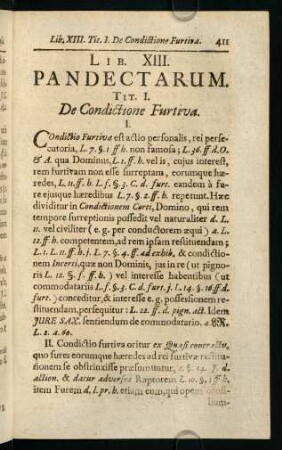 Lib. XIII. Tit. I. De Condictione Furtiva. 411
LIB. XIII.
PANDECTARUM.
TIT. I.
De Condictione Furtiva.
I.
Condictio Furtiva est actio personalis, rei perse-
cutoria, L. 7. §. 1 ff h. non famosa; L. 36. ff d. O.
& A. qua Dominus, L. 1. ff. h. vel is, cujus interest,
rem furtivam non esse surreptam, eorumque hæ-
redes, L. 11. ff. h. L. f. §. 3. C. d. furt. eandem à fu-
re ejusque hæredibus L. 7. §. 2. ff. h. repetunt. Hæc
dividitur in Condictionem Certi, Domino, qui rem
tempore surreptionis possedit vel naturaliter d. L.
11. vel civiliter (e. g. per conductorem æqui) a. L.
12. ff h. competentem, ad rem ipsam restituendam;
L. 1. L. 11. ff h. j. L. 7. §. 4. ff. ad exhib, & condictio-
nem Incerti, quæ non Dominis, jus in re (ut pigno-
ris L. 12. §. f. ff. h.) vel interesse habentibus (ut
commodatariis L. f. §. 3. C. d. furt. j. l. 14. §. 16 ff d.
furt.) conceditur, & interesse e. g. possessionem re-
stituendam, persequitur: L. 22. ff. d. pign. act. Idem
JURE SAX. sentiendum de commodatario. a.
L. 2. a. 60.
II. Condictio furtiva oritur ex Quasi contractu,
quo fures eorumque hæredes ad rei furtivæ restitu-
tionem se obstrinxisse præsumuntur, §. 14. J. d.
action. & datur adversus Raptorem L. 10. §. 1 ff h.
item Furem d. l. pr. h. etiam eum, qui opem